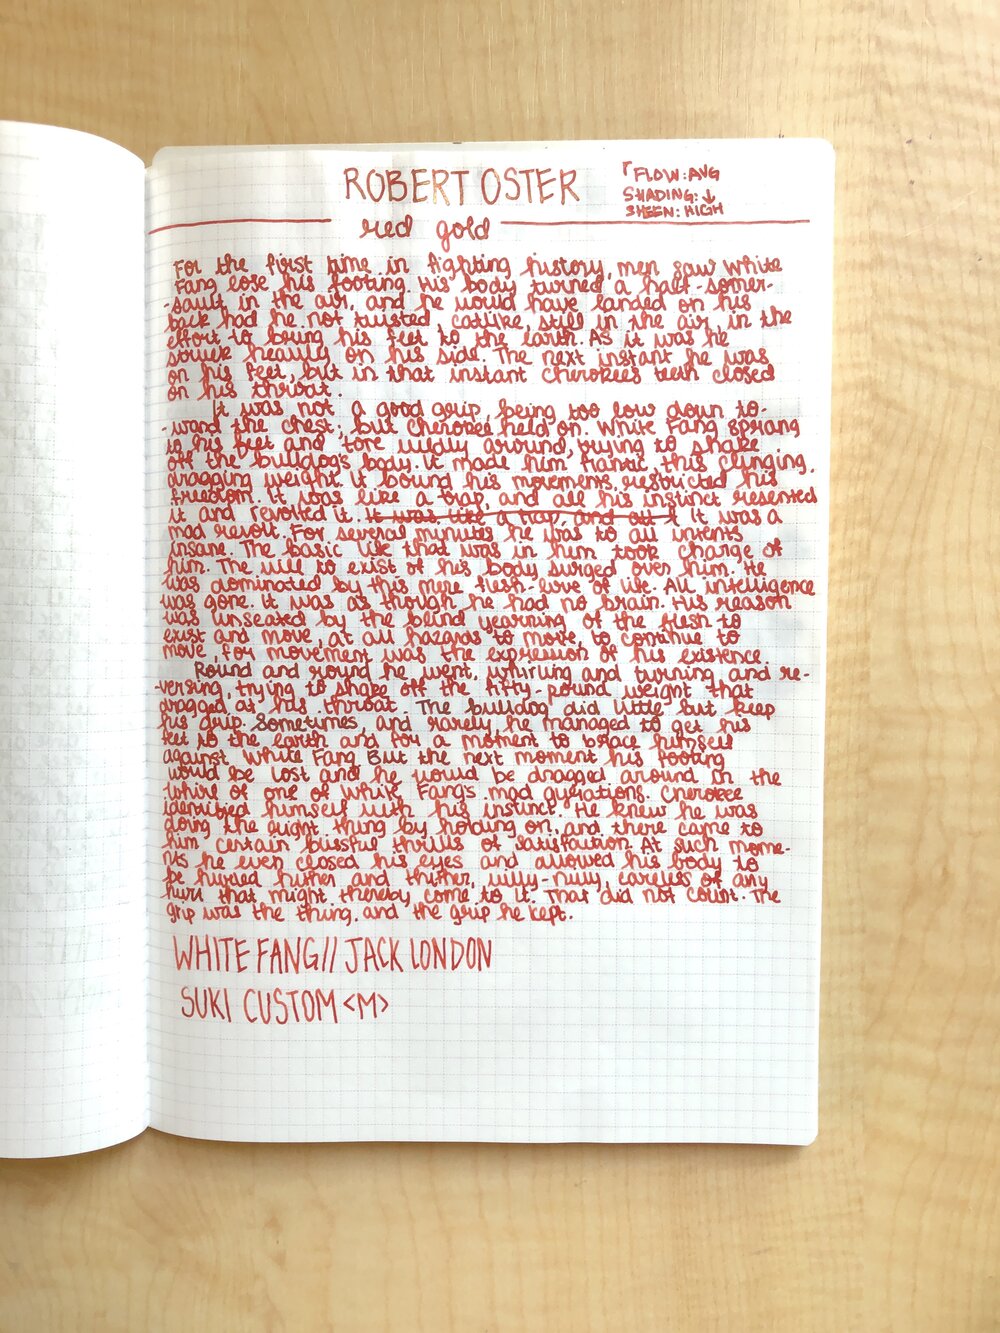 ROBERT OSTER
FLOW: AVG
SHADING: ↓
SHEEN: HIGH
red gold
For the first time in fighting history, men saw White
Fang lose his footing. His body turned a half-somer-
-sault in the air, and he would have landed on his
back had he not twisted, catlike, still in the air, in the
effort to bring his feet to the earth. As it was he
struck heavily on his side. The next instant he was
on his feet, but in that instant Cherokees teeth closed
on his throat.
It was not a good grip, being too low down to-
-ward the chest, but Cherokee held on. White Fang sprang
to his feet and tore wildly around, trying to shake
off the bulldog's body. It made him frantic, this clinging,
dragging weight. It bound his movements, restricted his
freedom. It was like a trap, and all his instinct resented
it and revolted it. It was like a trap, and all It was a
mad revolt. For several minutes he was to all intents
insane. The basic life that was in him took charge of
him. The will to exist of his body surged over him. He
was dominated by this mere flesh-love of life. All intelligence
was gone. It was as though he had no brain. His reason
was unseated by the blind yearning of the flesh to
exist and move, at all hazards to move, to continue to
move, for movement was the expression of his existence.
Round and round he went, whirling and turning and re-
-versing, trying to shake off the fifty-pound weight that
dragged at his throat. The bulldog did little but keep
his grip. Sometimes, and rarely he managed to get his
feet to the earth and for a moment to brace himself
against White Fang But the next moment his footing
would be lost and he would be dragged around in the
whirl of one of White Fang's mad gyrations. Cherokee
identified himself with his instinct. He knew he was
doing the right thing by holding on, and there came to
him certain blissful thrills of satisfaction. At such mome-
nts he even closed his eyes and allowed his body to
be hurled hither and thither, willy-nilly, careless of any
hurt that might thereby come to it. That did not count. The
grip was the thing, and the grip he kept.
WHITE FANG// JACK LONDON
SUKI CUSTOM <M>